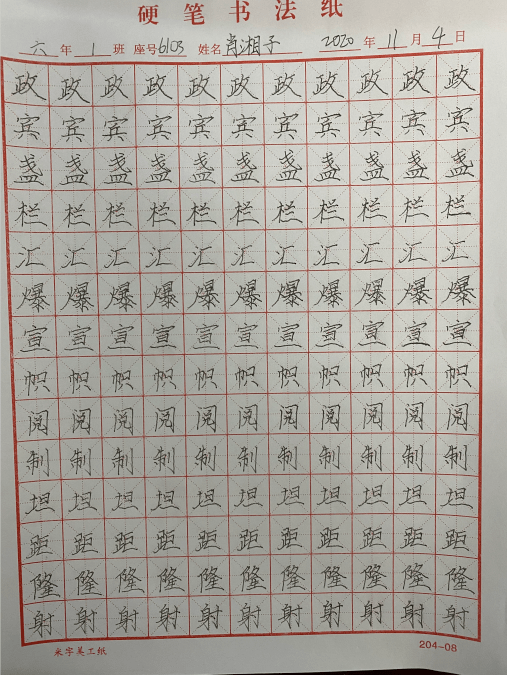 硬笔书法纸
六年1班 座号6103 姓名肖湘子 2020年11月4日
政政政政政政政政政政政
宾宾宾宾宾宾宾宾宾宾宾
盏盏盏盏盏盏盏盏盏盏盏
栏栏栏栏栏栏栏栏栏栏栏
汇汇汇汇汇汇汇汇汇汇汇
爆爆爆爆爆爆爆爆爆爆爆
宣宣宣宣宣宣宣宣宣宣宣
帜帜帜帜帜帜帜帜帜帜帜
阅阅阅阅阅阅阅阅阅阅阅
制制制制制制制制制制制
坦坦坦坦坦坦坦坦坦坦坦
距距距距距距距距距距距
隆隆隆隆隆隆隆隆隆隆隆
射射射射射射射射射射射
米字美工纸 204-08